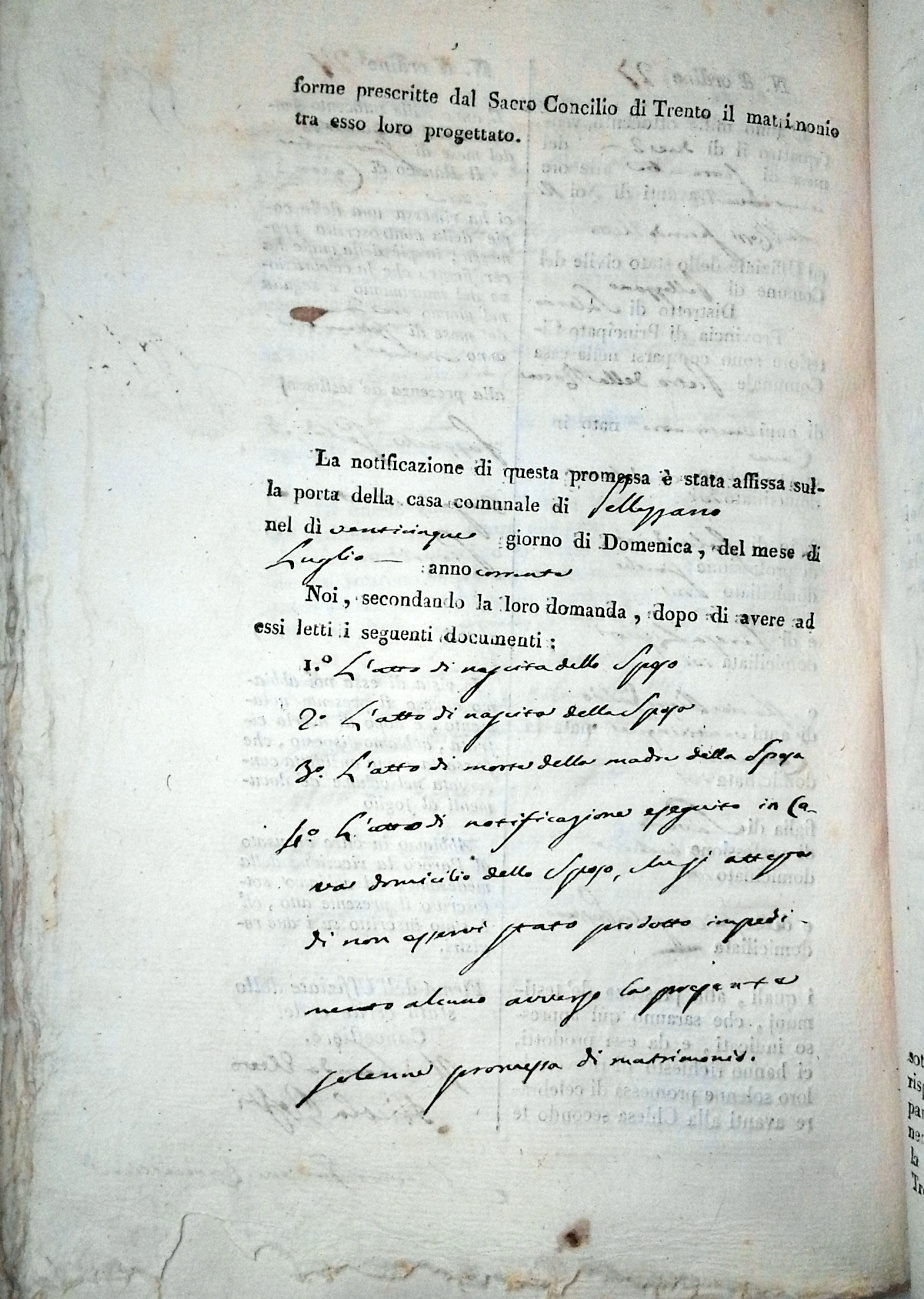 forme prescritte dal Sacro Concilio di Trento il matrimonio
tra esso loro progettato.
La notificazione di questa promessa è stata affissa sul-
la porta della casa comunale di Pellezzano
nel dì venticinque giorno di Domenica, del mese di
Luglio — anno corrente
Noi, secondando la loro domanda, dopo di avere ad
essi letti i seguenti documenti:
1.º L'atto di nascita dello Sposo
2º L'atto di nascita della Sposa
3º. L'atto di morte della madre della Sposa
4º L'atto di notificazione eseguito in Ca-
va domicilio dello Sposo, che si attesta
di non esservi stato prodotto impedi-
mento alcuno avverso la presente
solenne promessa di matrimonio.
sot
risp
par
la
Tre